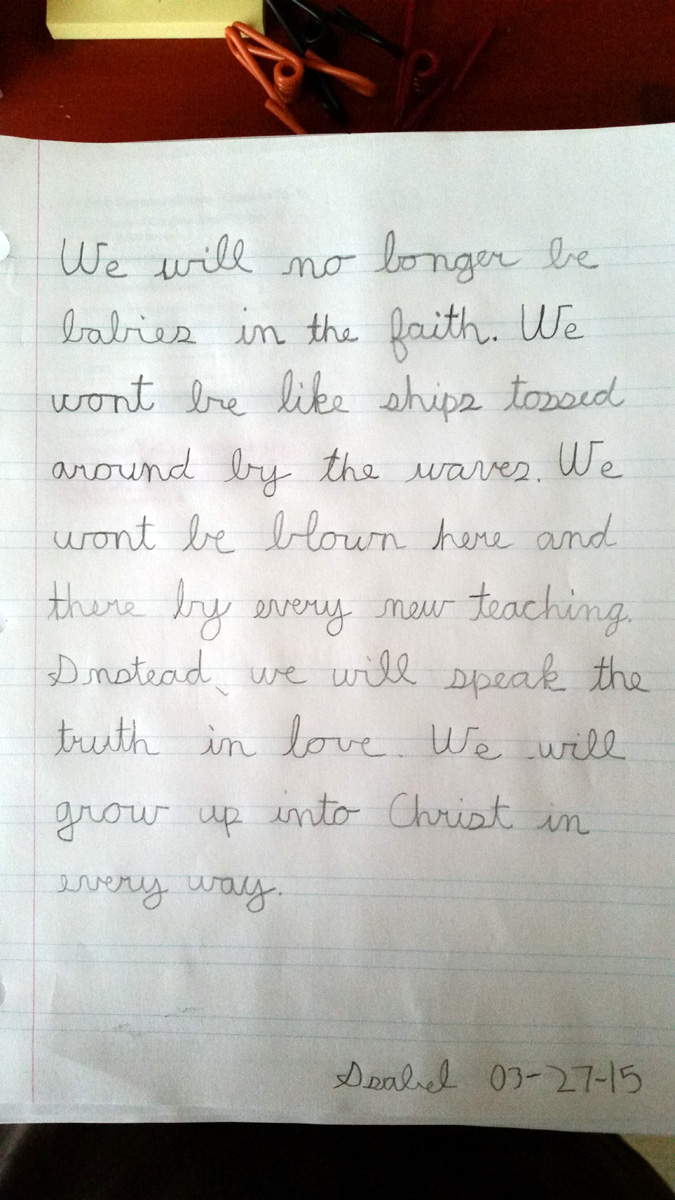 We will no longer be
babies in the faith. We
wont be like ships tossed
around by the waves. We
wont be blown here and
there by every new teaching.
Instead, we will speak the
truth in love. We will
grow up into Christ in
every way.
Isabel 03-27-15